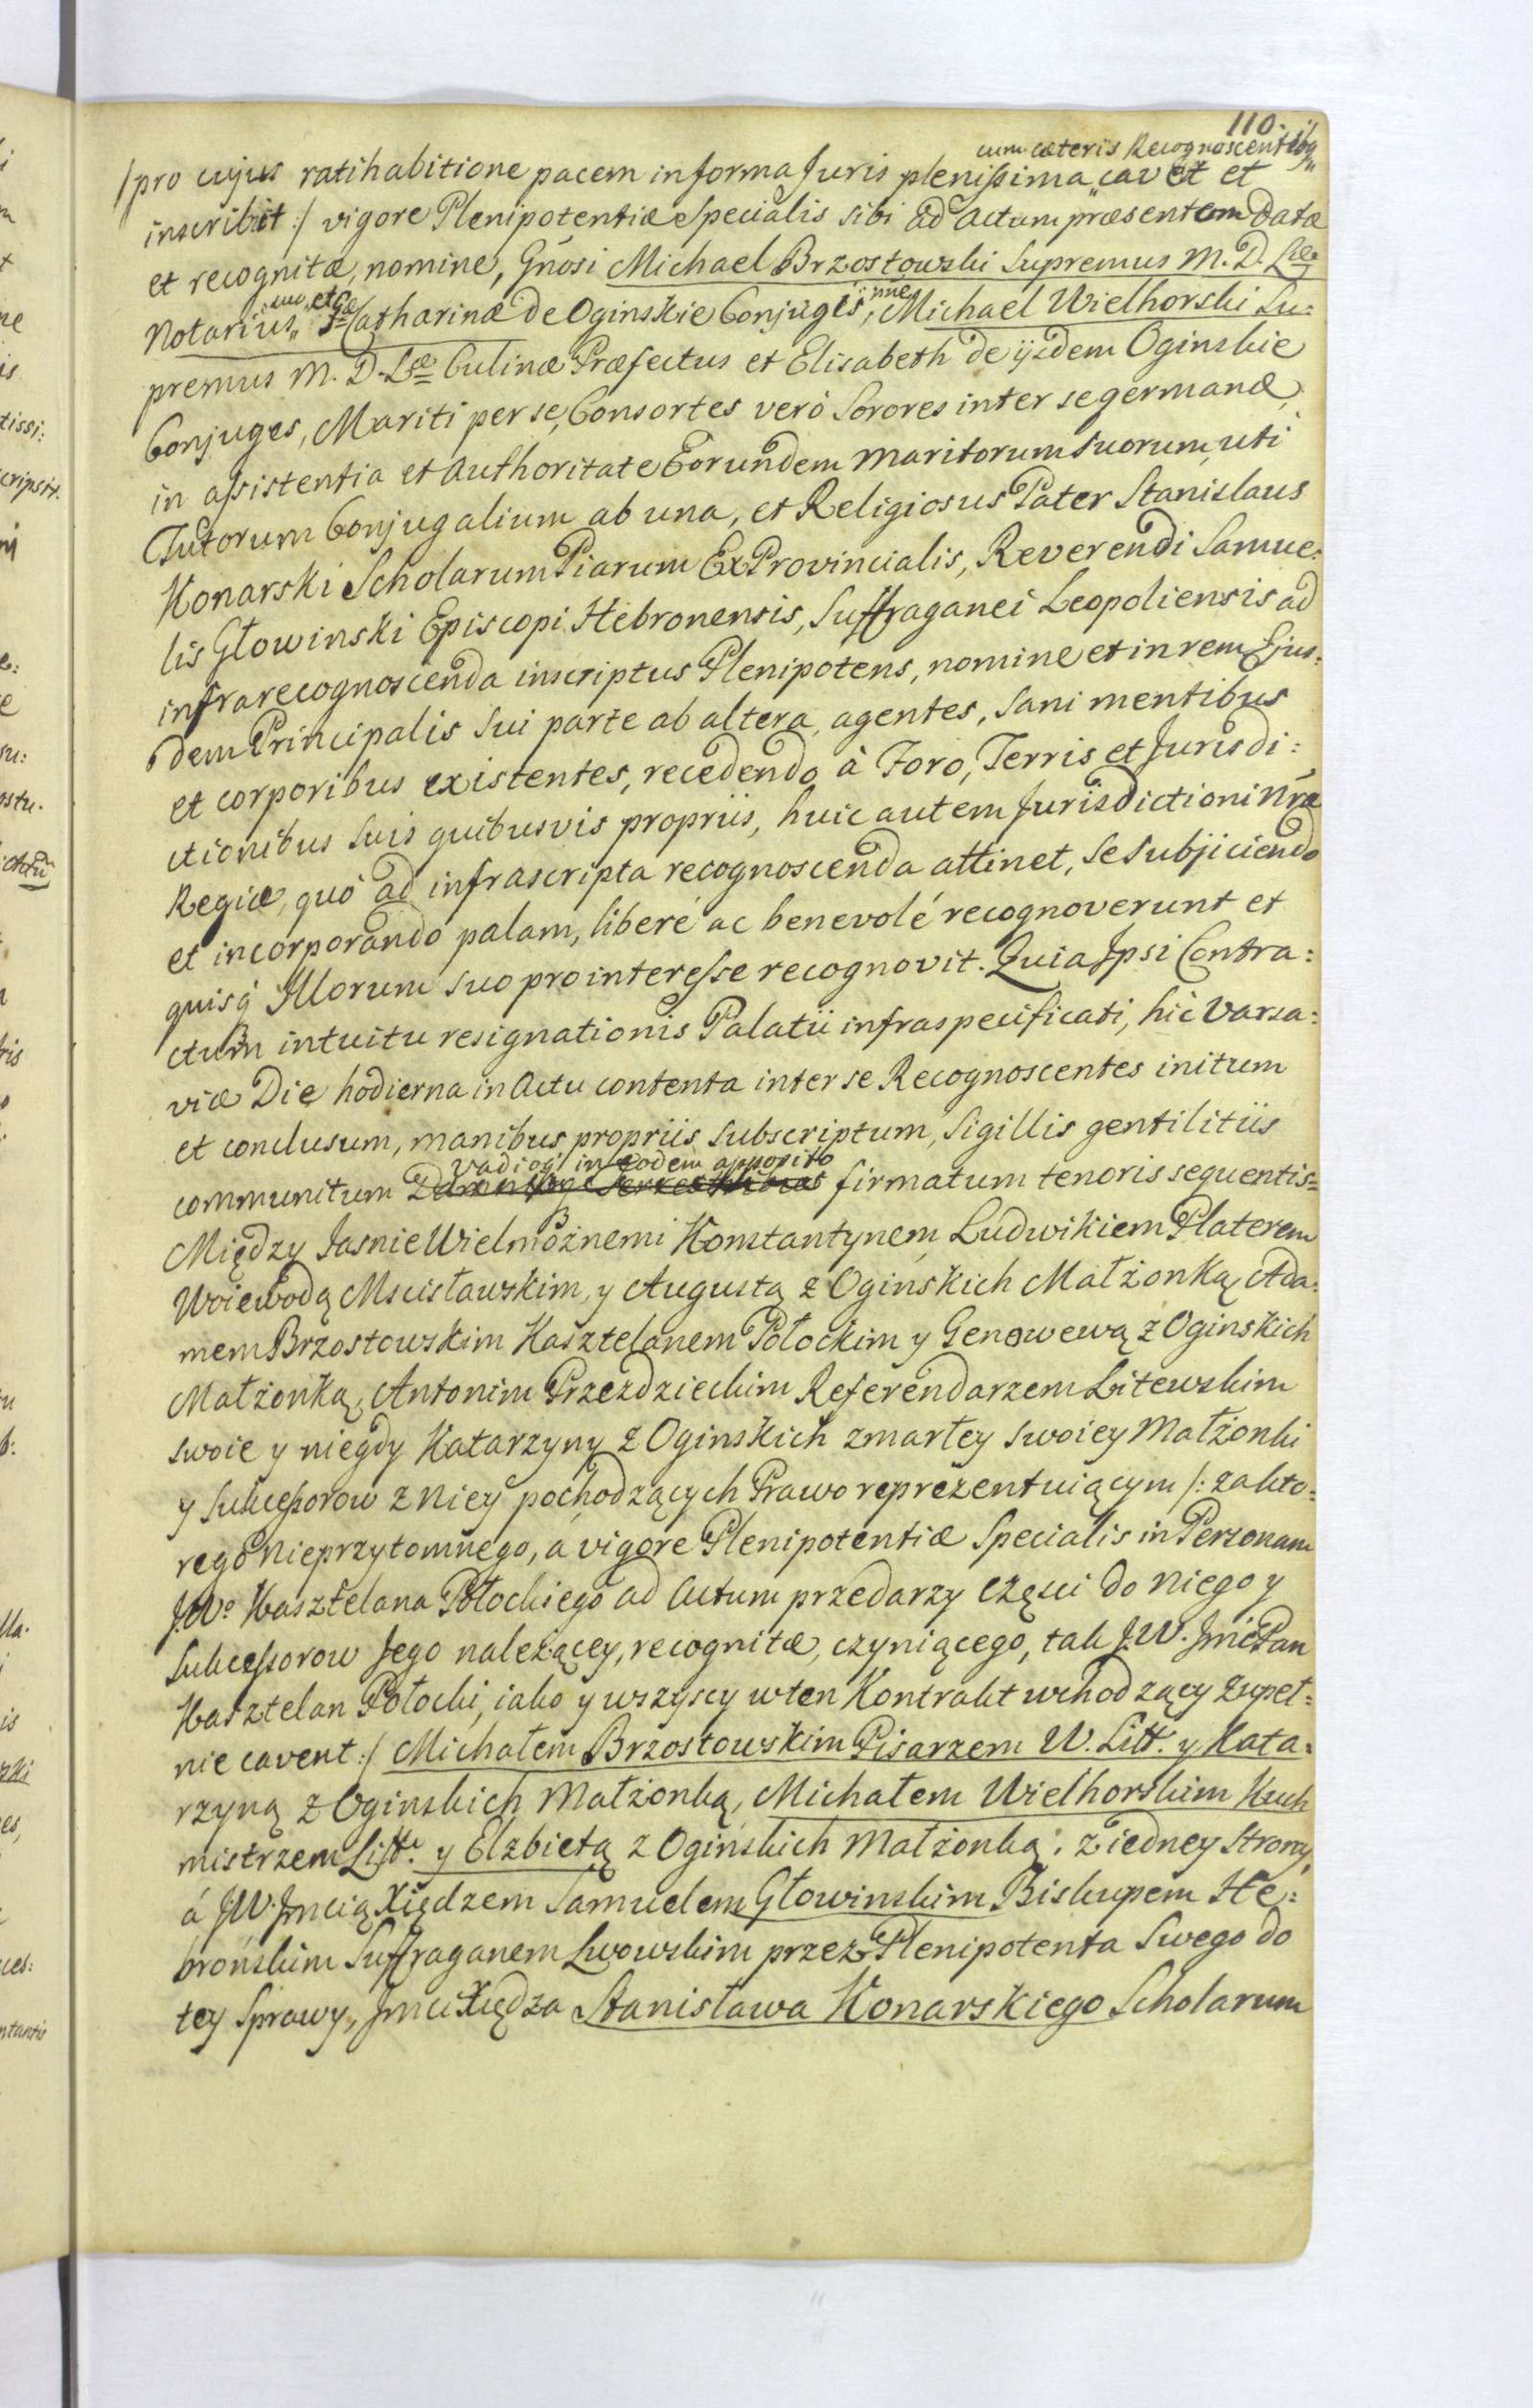 110.
cum cæteris Recognoscentibq
/pro cujus ratihabitione pacem in forma Juris plenissima „ cavet et
inscribit :/ vigore Plenipotentiæ specialis sibi ad Actum præsentem datæ
et recognitæ, nomine, Gnosi Michael Brzostowski Supremus M. D. Lttæ
Notarius „ Catharina de Oginskie Conjuges, Michael Wielhorski Su:
premus M. D. Læ Culinæ Præfectus et Elisabeth de ijsdem Oginskie
Conjuges, Mariti per se, Consortes verò Sorores inter se germanæ,
in assistentia et Authoritate Eorundem Maritorum suorum, uti
Tutorum Conjugalium ab una, et Religiosus Pater Stanislaus
Konarski Scholarum Piarum ExProvincialis, Reverendi Samue:
lis Głowinski Episcopi Hebronensis, Suffraganei Leopoliensis ad
infrarecognoscenda inscriptus Plenipotens, nomine et in rem Ejus:
dem Principalis sui parte ab altera, agentes, sani mentibus
et corporibus existentes, recedendo à Foro, Terris et Jurisdi:
ctionibus suis quibusvis propriis, huic autem Jurisdictioni Nræ
Regiæ, quò ad infrascripta recognoscenda attinet, se subjiciendo
et incorporando palam, liberé ac benevolé recognoverunt et
quisq Illorum suo pro interesse recognovit. Quia Ipsi Contra:
ctum intuitu resignationis Palatii infraspecificati, hic Varsa:
viæ Die hodierna in Actu contenta inter se Recognoscentes initum
et conclusum, manibus propriis subscriptum, Sigillis gentilitiis
Vadioq in eodem apposito
communitum firmatum tenoris sequentis=
Między Jasnie Wielmożnemi Konstantynem Ludwikiem Platerem
Woiewodą Mscisławskim, y Augustą z Oginskich Małżonką, Ada:
mem Brzostowskim Kasztelanem Połockim y Genowewą z Oginskich
Małżonką, Antonim Przezdzieckim Referendarzem Litewskim
swoie y niegdy Katarzyny z Oginskich zmarłey swoiey Małżonki
y Sukcessorow z Niey pochodzących Prawo reprezentuiącym /: za kto:
rego Nieprzytomnego, a vigore Plenipotentiæ Specialis in Personam
JWo Kasztelana Połockiego ad Actum przedarzy części do Niego y
Sukcessorow Jego należącey, recognitæ, czyniącego, tak J.W. Jmć Pan
Kasztelan Połocki, iako y wszyscy w ten Kontrakt wchodzący zupeł:
nie cavent :/ Michałem Brzostowskim Pisarzem W. Litt. y Kata:
rzyną z Oginskich Małżonką, Michałem Wielhorskim Kuch
mistrzem Litt. y Elzbietą z Oginskich Małżonką. z iedney strony,
á J.W. Jmcią Xiędzem Samuelem Głowinskim Biskupem He:
brońskim Suffraganem Lwowskim przez Plenipotenta Swego do
tey Sprawy, Jmci Xiędza Stanisława Konarskiego Scholarum